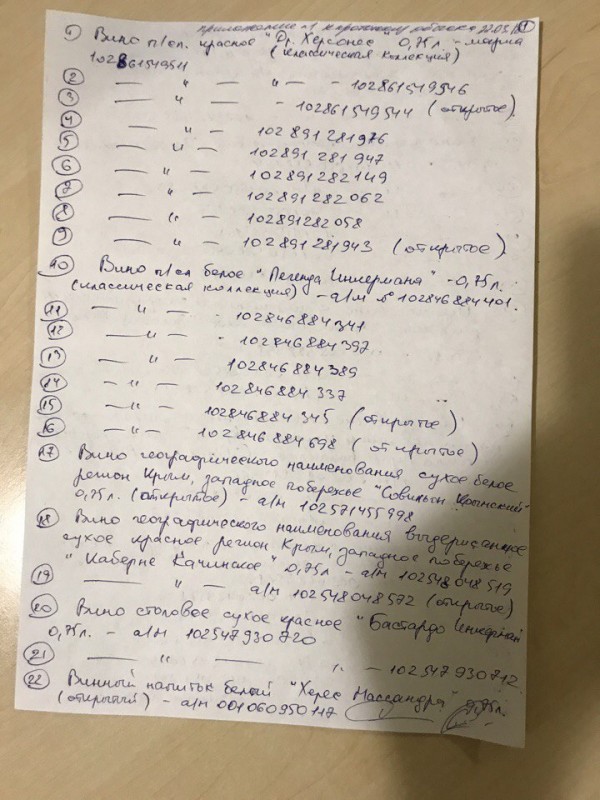 приложение №1 к протоколу обыска 22.03. 1
1) Вино п/сл. красное "Др. Херсонес 0,75л - марка
102861549511 (классическая коллекция)
2 — " — " — - 102861549546
3 — " — - 102861549544 (открытое)
4
5 — " — 102891281976
6 — " — 102891281947
7 — " — 102891282149
8 — " — 102891282062
9 — " — 102891282058
— " — 102891281943 (открытое)
10 Вино п/сл белое "Легенда Инкермана" - 0,75л.
(классическая коллекция) - а/м № 102846884401.
11 — " — - 102846884341
12 — " — - 102846884397
13 — " — 102846884389
14 — " — 102846884337
15 — " — 102846884345 (открытое)
16 — " — 102846884698 (открытое)
17 Вино географического наименования сухое белое
регион Крым, западное побережье "Совиньон Крымский"
0,75л. (открытое) - а/м 102571455998
18 Вино географического наименования выдержанное
сухое красное регион Крым, западное побережье
"Каберне Качинское" 0,75л - а/м 102548048519
19 — " — а/м 102548048572 (открытое)
20 Вино столовое сухое красное "Бастардо Инкерман
0,75л. - а/м 102547930720
21 — " — " - 102547930712
22 Винный напиток белый "Херес Массандра" 0,75л.
(открытый) - а/м 001060950117